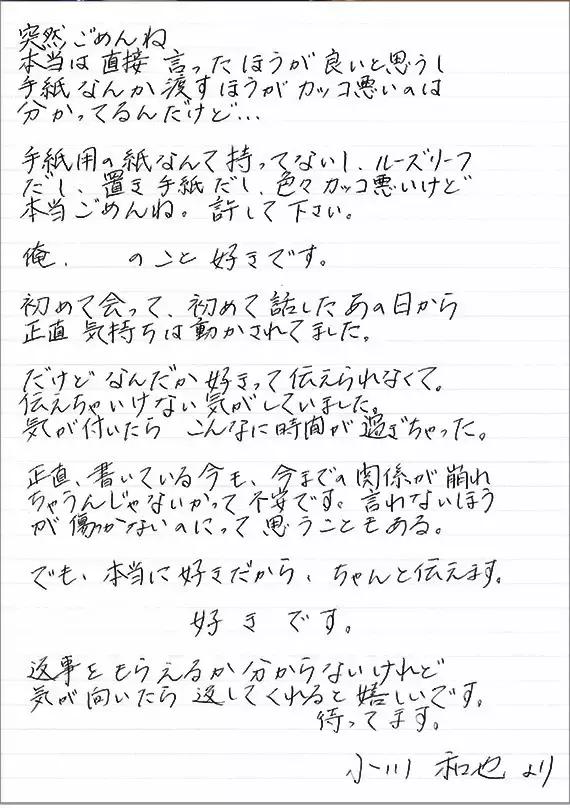 突然ごめんね
本当は直接言ったほうが良いと思うし
手紙なんか渡すほうがカッコ悪いのは
分かってるんだけど…
手紙用の紙なんて持ってないし、ルーズリーフ
だし、置き手紙だし、色々カッコ悪いけど
本当ごめんね。許して下さい。
俺、 のこと好きです。
初めて会って、初めて話したあの日から
正直気持ちは動かされてました。
だけどなんだか好きって伝えられなくて。
伝えちゃいけない気がしていました。
気が付いたら こんなに時間が過ぎちゃった。
正直、書いている今も、今までの関係が崩れ
ちゃうんじゃないかって不安です。言れないほう
が傷つかないのにって思うこともある。
でも、本当に好きだから、ちゃんと伝えます。
好きです。
返事をもらえるか分からないけれど
気が向いたら返してくれると嬉しいです。
待ってます。
小川 和也 より